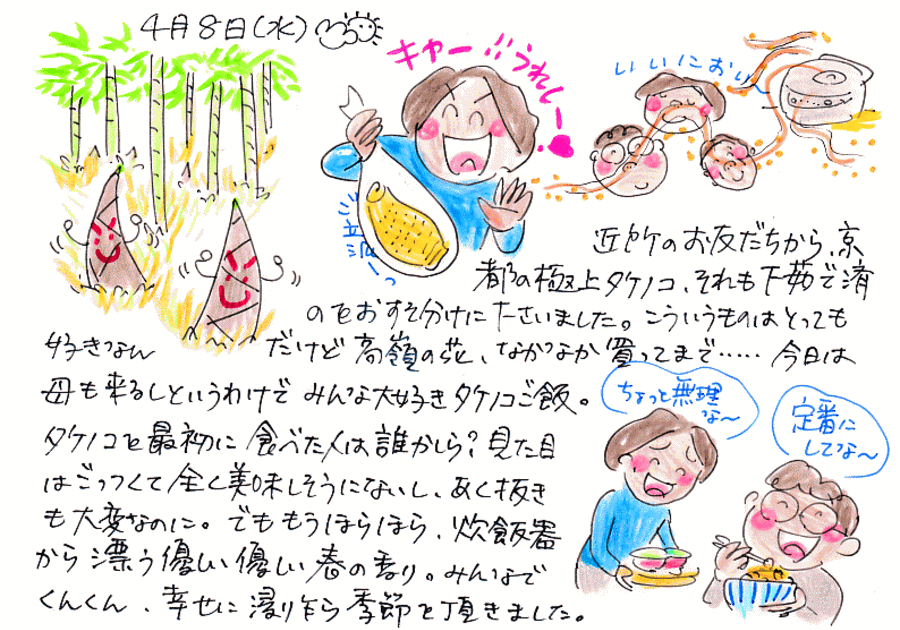 4月8日(水)
キャー!!うれしー
いいにおい〜
近所のお友だちから、京
都の極上タケノコ、それも下茹で済
のをおすそ分けに下さいました。こういうものはとっても
好きなん だけど 高嶺の花、なかなか買ってまで……今日は
母も来るしというわけで みんな大好きタケノコご飯。
タケノコを最初に食べた人は誰かしら?見た目
はごっつくて全く美味しそうにないし、あく抜き
も大変なのに。でももうほらほら、炊飯器
から漂う優しい優しい春の香り。みんなで
くんくん、幸せに浸り乍ら季節を頂きました。
ちょっと無理
な〜
定番に
してな〜